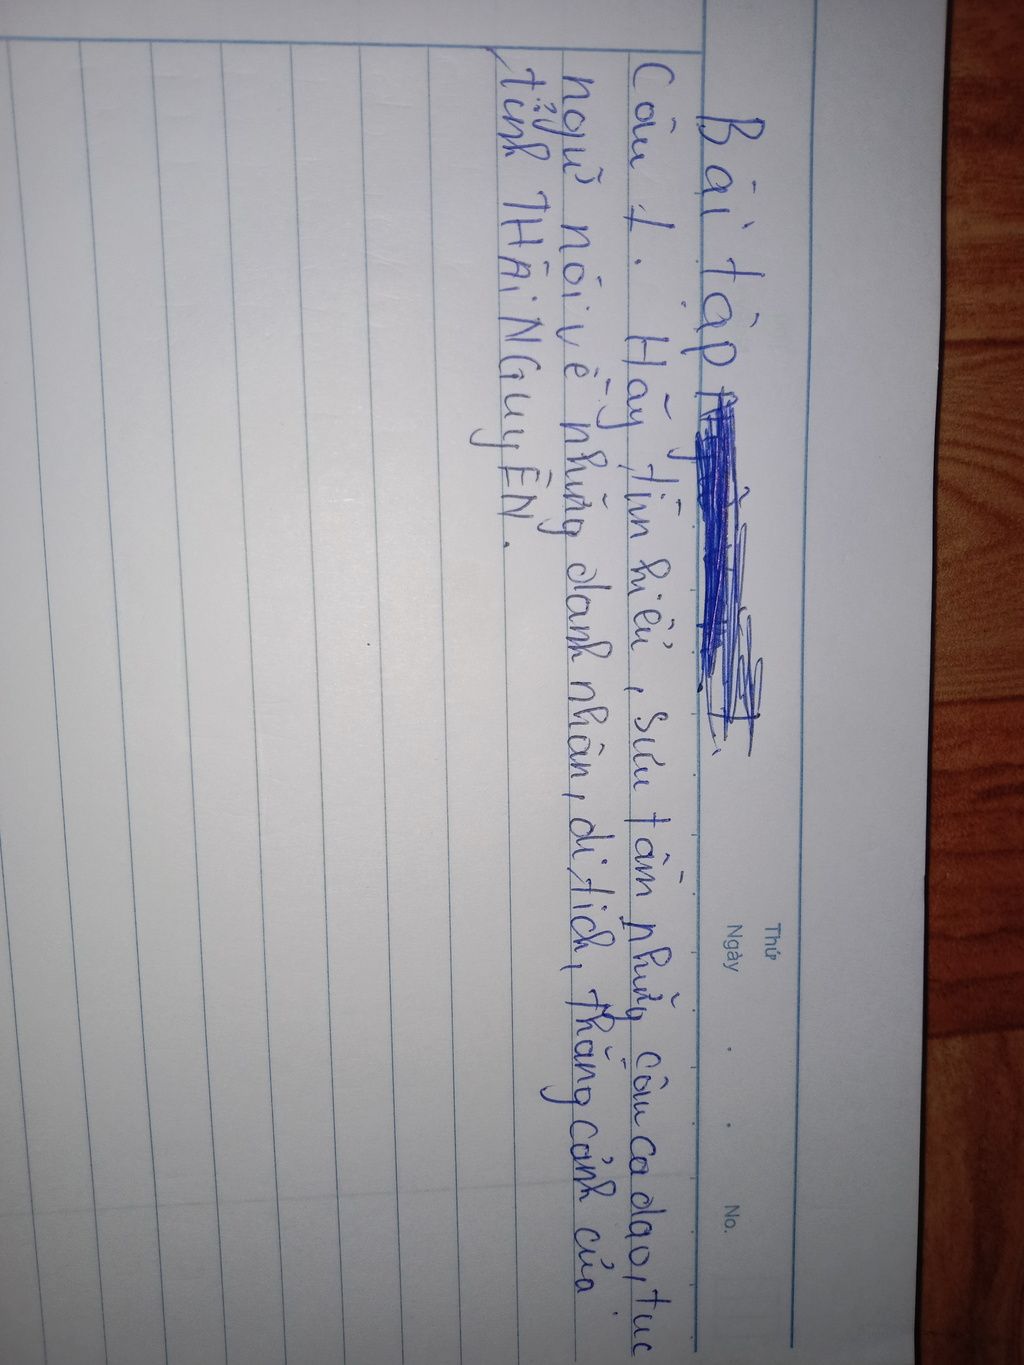 Thứ
Ngày . . No.
Bài tập
Câu 1. Hãy tìm hiểu, sưu tầm những câu ca dao, tục
ngữ nói về những danh nhân, di tích, thắng cảnh của
tỉnh THÁI NGUYÊN.